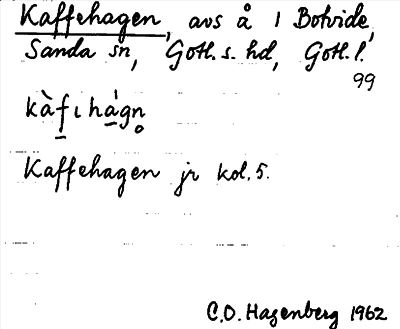 Kaffehagen, avs å 1 Botvide,
Sanda sn, Gotl. s. hd, Gotl. l.
99
kàfıhàgn̥
Kaffehagen jr kol. 5.
C.O. Hagenberg 1962